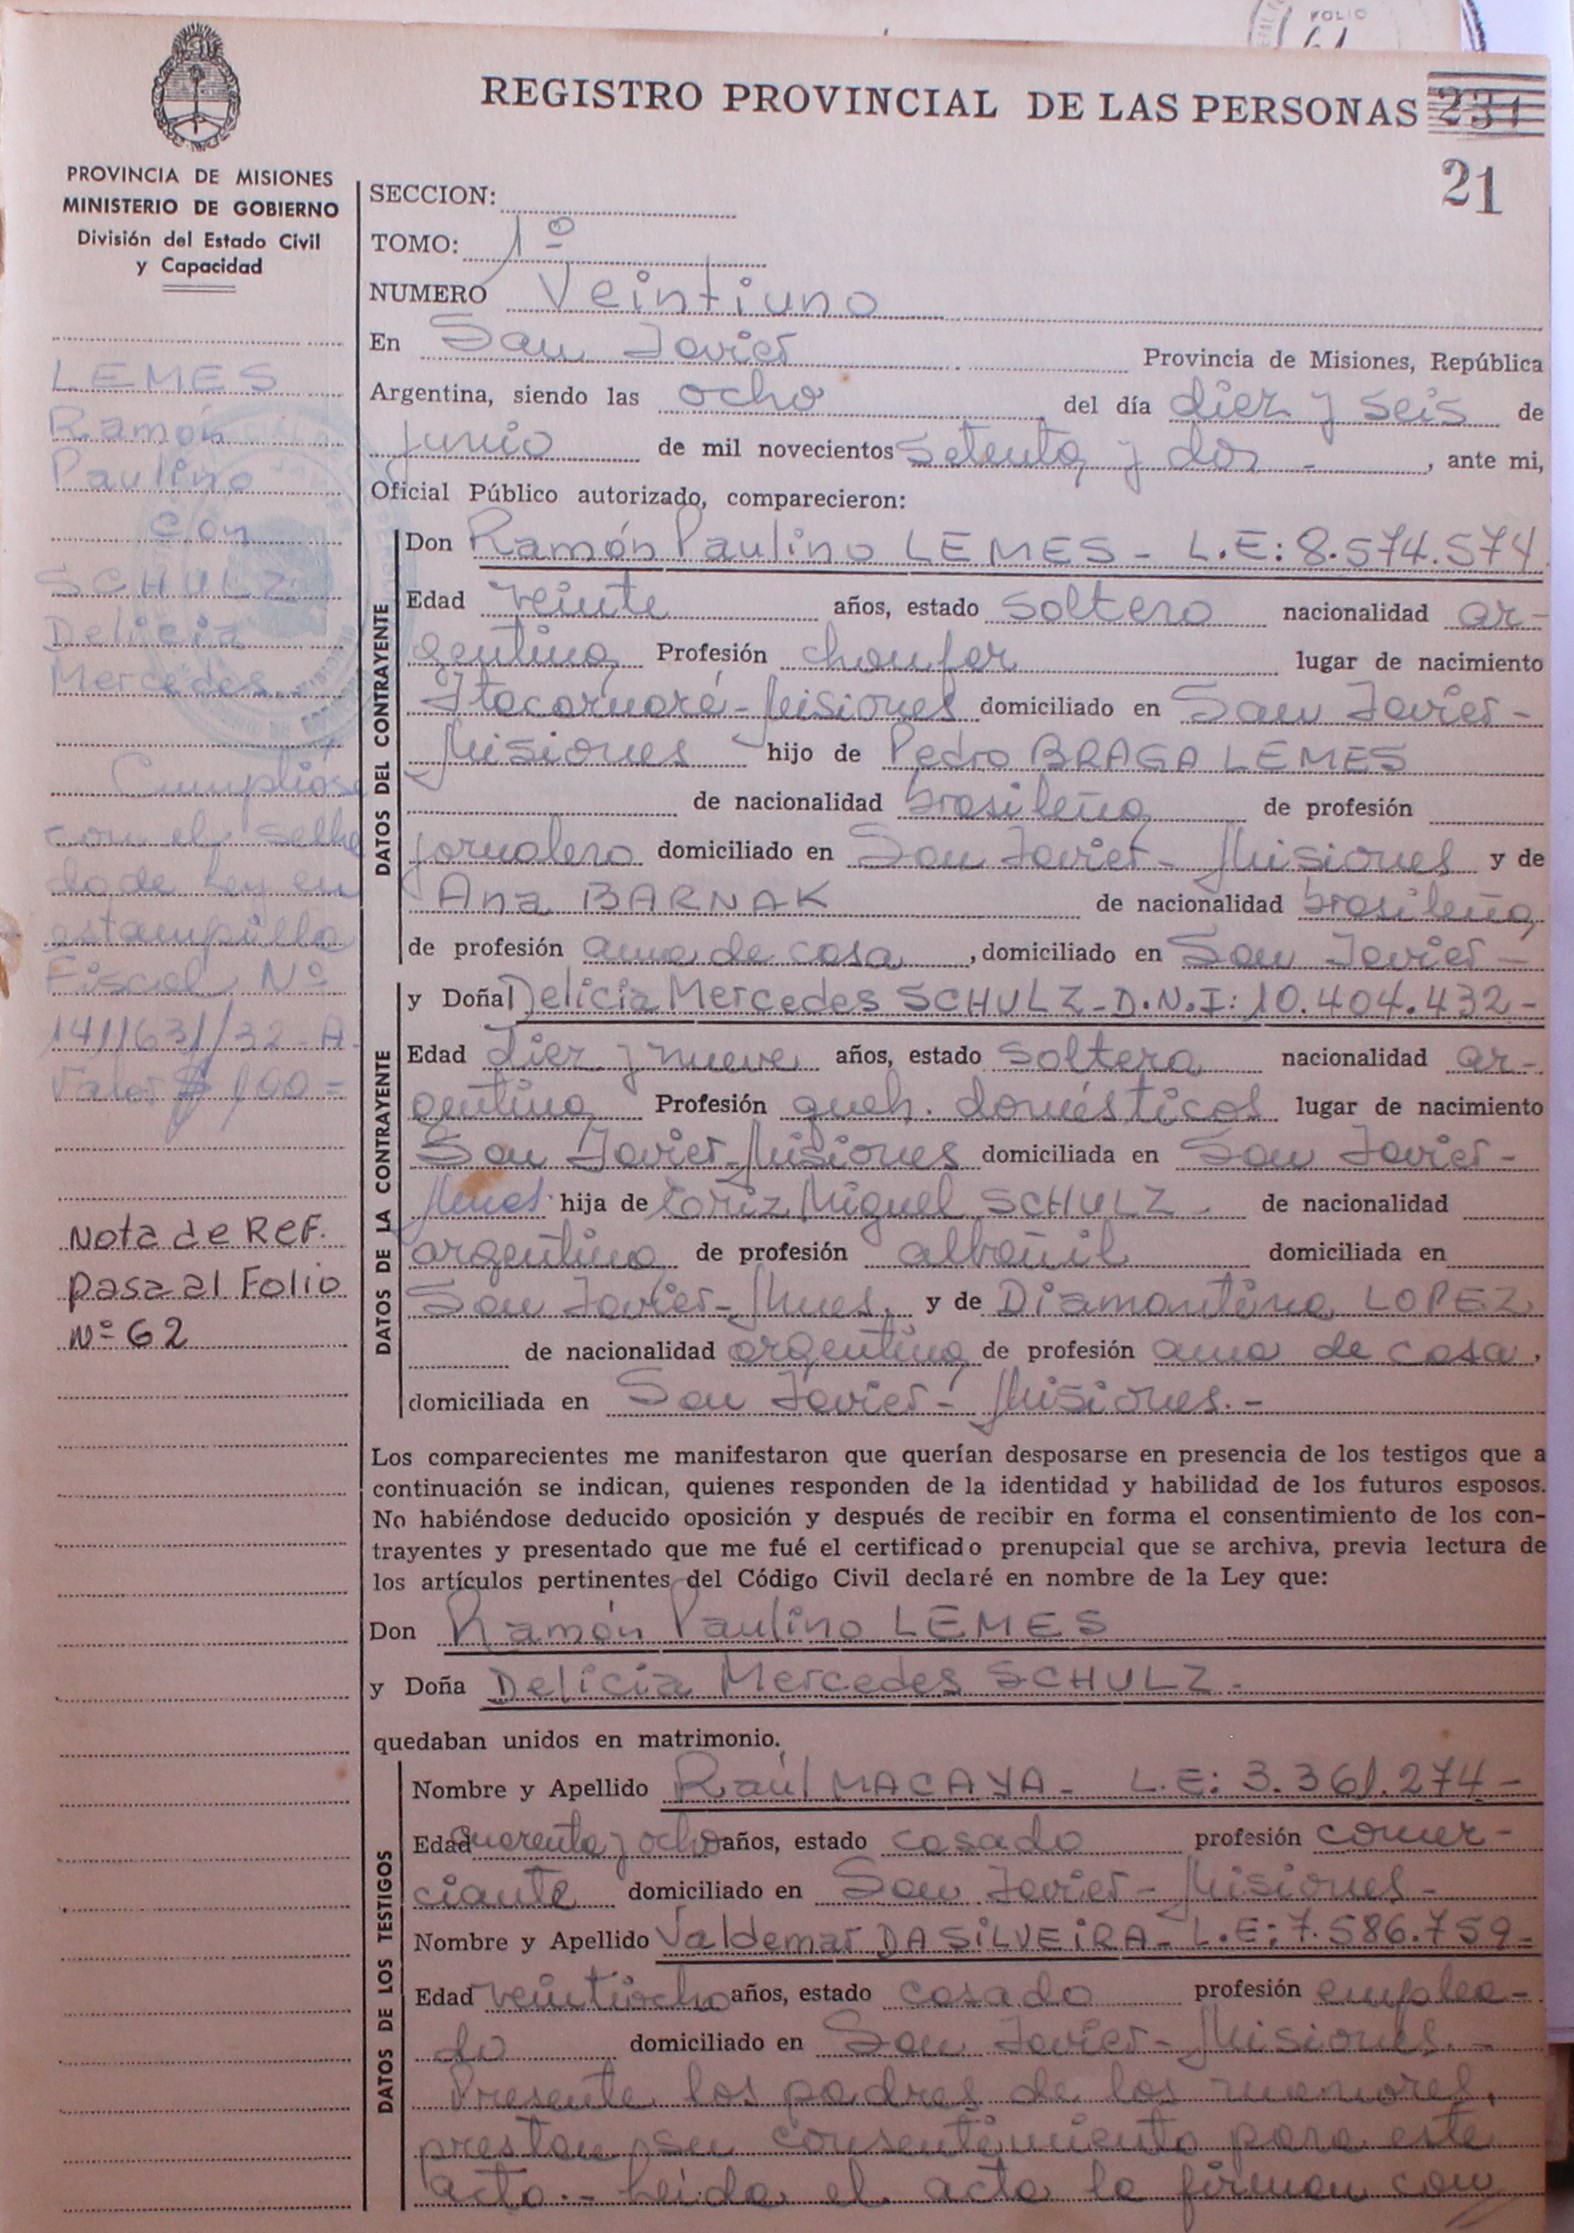 FOLIO
61
REGISTRO PROVINCIAL DE LAS PERSONAS 231
21
PROVINCIA DE MISIONES
MINISTERIO DE GOBIERNO
División del Estado Civil
y Capacidad
LEMES
Ramón
Paulino
con
SCHULZ
Delicia
Mercedes
Cumpliose
con el sella
do de Ley en
estampilla
Fiscal Nº
1411631/32-A
Valor $ 100=
Nota de REF.
pasa al Folio
Nº 62
SECCION:
TOMO: 1º
NUMERO Veintiuno
En San Javier Provincia de Misiones, República
Argentina, siendo las ocho del día diez y seis de
junio de mil novecientos setenta y dos - , ante mi,
Oficial Público autorizado, comparecieron:
DATOS DEL CONTRAYENTE
Don Ramón Paulino LEMES - L.E: 8.574.574
Edad veinte años, estado soltero nacionalidad ar-
gentina Profesión choufer lugar de nacimiento
Itacaruaré-Misiones domiciliado en San Javier-
Misiones hijo de Pedro BRAGA LEMES
de nacionalidad brasileña de profesión
jornalero domiciliado en San Javier- Misiones y de
Ana BARNAK de nacionalidad brasileña
de profesión ama de casa , domiciliado en San Javier-
DATOS DE LA CONTRAYENTE
y Doña Delicia Mercedes SCHULZ-D.N.I: 10.404.432-
Edad diez y nueve años, estado soltera nacionalidad ar-
gentina Profesión queh. domésticos lugar de nacimiento
San Javier-Misiones domiciliada en San Javier-
Mnes. hija de Miguel SCHULZ - de nacionalidad
argentina de profesión albañil domiciliada en
San Javier-Mnes. y de Diamantina LOPEZ
de nacionalidad argentina de profesión ama de casa,
domiciliada en San Javier- Misiones.-
Los comparecientes me manifestaron que querían desposarse en presencia de los testigos que a
continuación se indican, quienes responden de la identidad y habilidad de los futuros esposos.
No habiéndose deducido oposición y después de recibir en forma el consentimiento de los con-
trayentes y presentado que me fué el certificado prenupcial que se archiva, previa lectura de
los artículos pertinentes del Código Civil declaré en nombre de la Ley que:
Don Ramón Paulino LEMES
y Doña Delicia Mercedes SCHULZ-
quedaban unidos en matrimonio.
DATOS DE LOS TESTIGOS
Nombre y Apellido Raúl MACAYA- L.E: 3.361.274-
Edad cuarenta y ocho años, estado casado profesión comer-
ciante domiciliado en San Javier- Misiones-
Nombre y Apellido Valdemar DA SILVEIRA- L.E: 7.586.759-
Edad veintiocho años, estado casado profesión emplea-
do domiciliado en San Javier-Misiones.-
Presente los padres de los menores,
prestan su consentimiento para este
acto.- Leída el acta la firman con